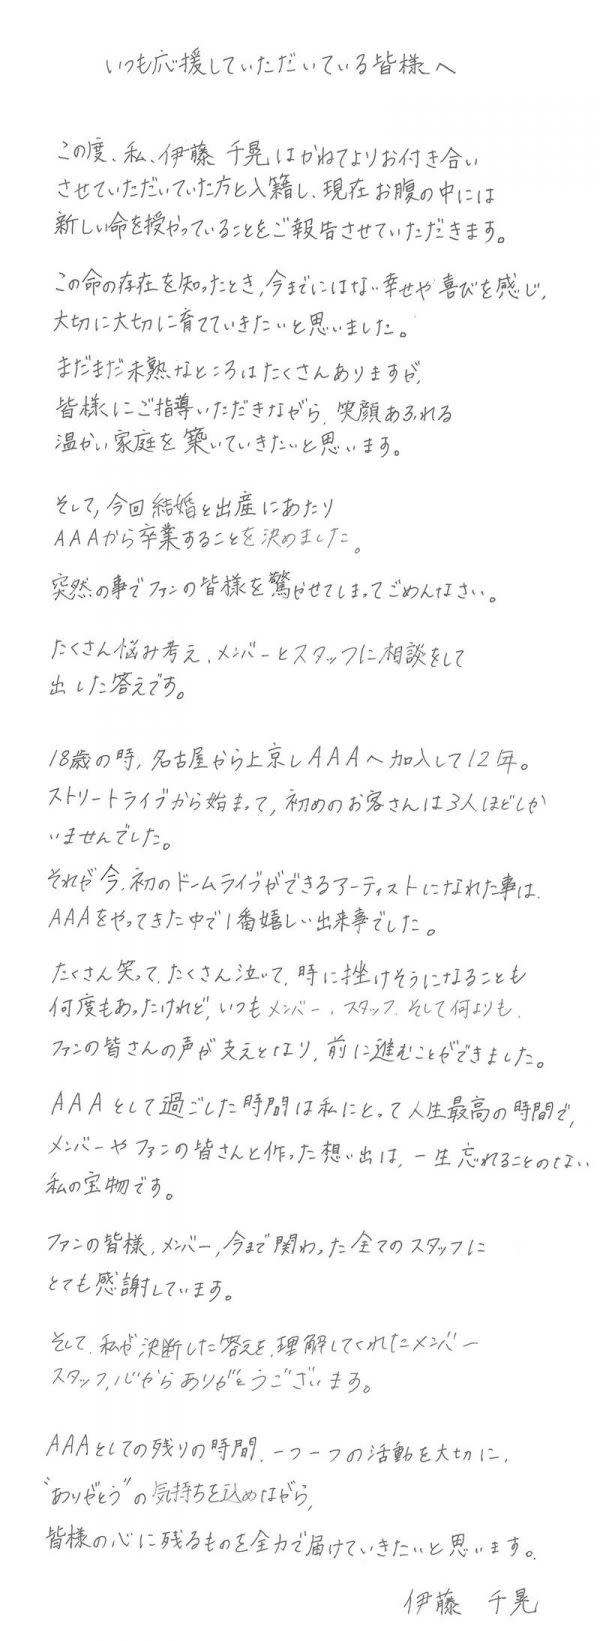 いつも応援していただいている皆様へ
この度、私、伊藤 千晃はかねてよりお付き合い
させていただいていた方と入籍し、現在お腹の中には
新しい命を授かっていることをご報告させていただきます。
この命の存在を知ったとき、今までにはない幸せや喜びを感じ、
大切に大切に育てていきたいと思いました。
まだまだ未熟なところはたくさんありますが、
皆様にご指導いただきながら、笑顔あふれる
温かい家庭を築いていきたいと思います。
そして、今回結婚と出産にあたり
AAAから卒業することを決めました。
突然の事でファンの皆様を驚かせてしまってごめんなさい。
たくさん悩み考え、メンバーとスタッフに相談をして
出した答えです。
18歳の時、名古屋から上京しAAAへ加入して12年。
ストリートライブから始まって、初めのお客さんは3人ほどしか
いませんでした。
それが今、初のドームライブができるアーティストになれた事は、
AAAをやってきた中で1番嬉しい出来事でした。
たくさん笑って、たくさん泣いて、時に挫けそうになることも
何度もあったけれど、いつもメンバー、スタッフ、そして何よりも、
ファンの皆さんの声が支えとなり、前に進むことができました。
AAAとして過ごした時間は私にとって人生最高の時間で、
メンバーやファンの皆さんと作った想い出は、一生忘れることのない
私の宝物です。
ファンの皆様、メンバー、今まで関わった全てのスタッフに
とても感謝しています。
そして、私が決断した答えを、理解してくれたメンバー
スタッフ、心からありがとうございます。
AAAとしての残りの時間、一つ一つの活動を大切に、
"ありがとう"の気持ちを込めながら、
皆様の心に残るものを全力で届けていきたいと思います。
伊藤 千晃